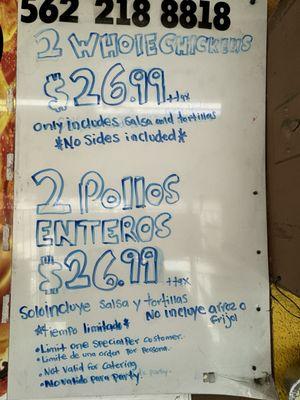 562 218 8818
2 WHOLE CHICKENS
$26.99 +tax
Only Includes salsa and tortillas
*No Sides included*
2 Pollos
ENTEROS
$26.99 +tax
Solo Incluye salsa y tortillas
No incluye arroz o
Frijol
*Tiempo limitado*
• Limit one Special Per Customer.
• Limite de una orden por Persona.
• Not Valid for Catering
• No valido para Party.